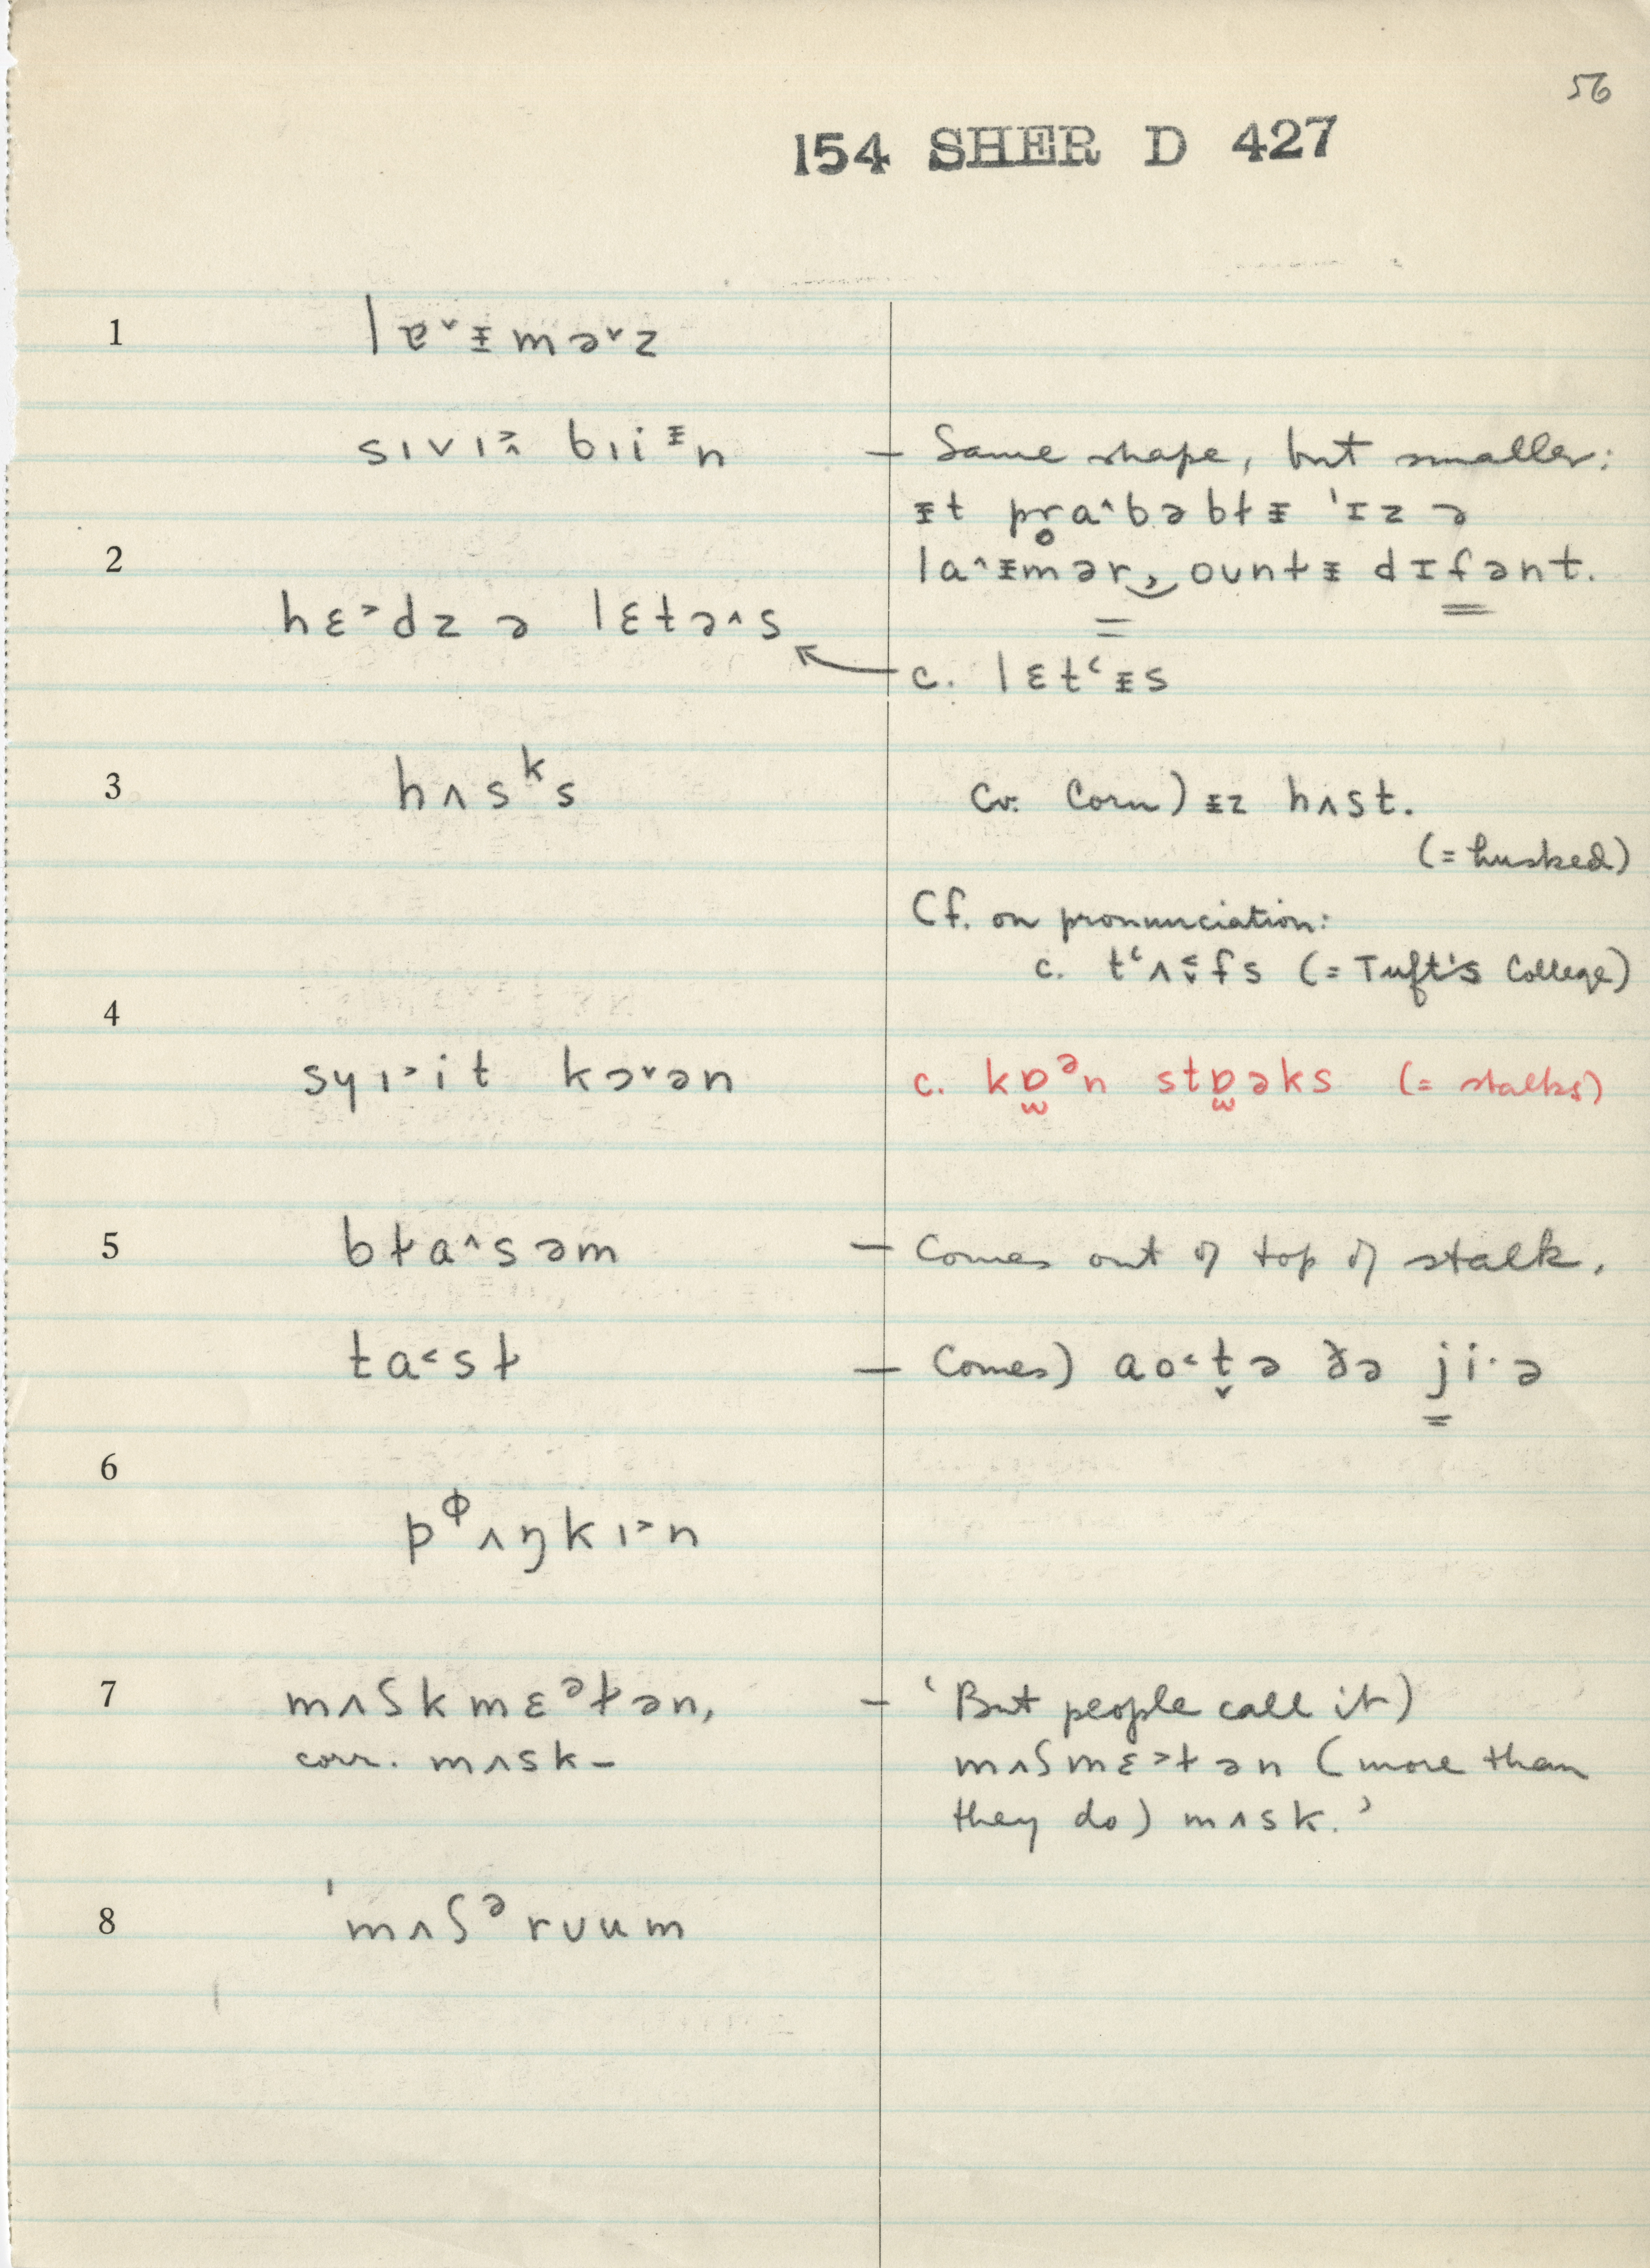 56
154 SHER D 427
1 lɐ˅ᵻmə˅z
sıvı˃̭ bıiᵻn — Same shape, but smaller:
ᵻt pr̥a˄bəbɫᵻ 'ɪz ə
2 la˄ᵻmər, ounɫᵻ dɪfənt.
hɛ˃dz ə lɛtə˄s
c. lɛtʻᵻs
3 hʌsᵏs cv. Corn) ᵻz hʌst.
(= husked)
Cf. on pronunciation:
c. tʻʌ˂̬fs (= Tuft's College)
4
syı˃it kɔ˅ən c. kɒ̫ᵊn stɒ̫əks (= stalks)
5 bɫa˄səm — Comes out of top of stalk.
ta˂sɫ — Comes) ao˂t̬ə ðə ji·ə
6
pᶲʌŋkı˃n
7 mʌʃkmɛᵊɫən, — ‘But people call it)
corr. mʌsk– mʌʃmɛ˃ɫən (more than
they do) mʌsk.’
8 'mʌʃᵊrᴜum